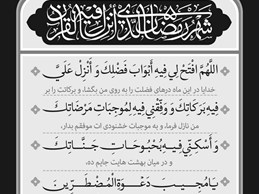 شهر رمضان الذي أنزل فيه القرآن
اللَّهُمَّ افْتَحْ لِي فِيهِ أَبْوَابَ فَضْلِكَ وَ أَنْزِلْ عَلَيَّ
خدایا در این ماه درهای فضلت را به روی من بگشا، و برکاتت را بر
فِيهِ بَرَكَاتِكَ وَ وَفِّقْنِي فِيهِ لِمُوجِبَاتِ مَرْضَاتِكَ
من نازل فرما، و به موجبات خشنودی ات موفقم بدار،
وَ أَسْكِنِّي فِيهِ بُحْبُوحَاتِ جَنَّاتِكَ
و در میان بهشت هایت جایم ده،
يَا مُجِيبَ دَعْوَةِ الْمُضْطَرِّينَ